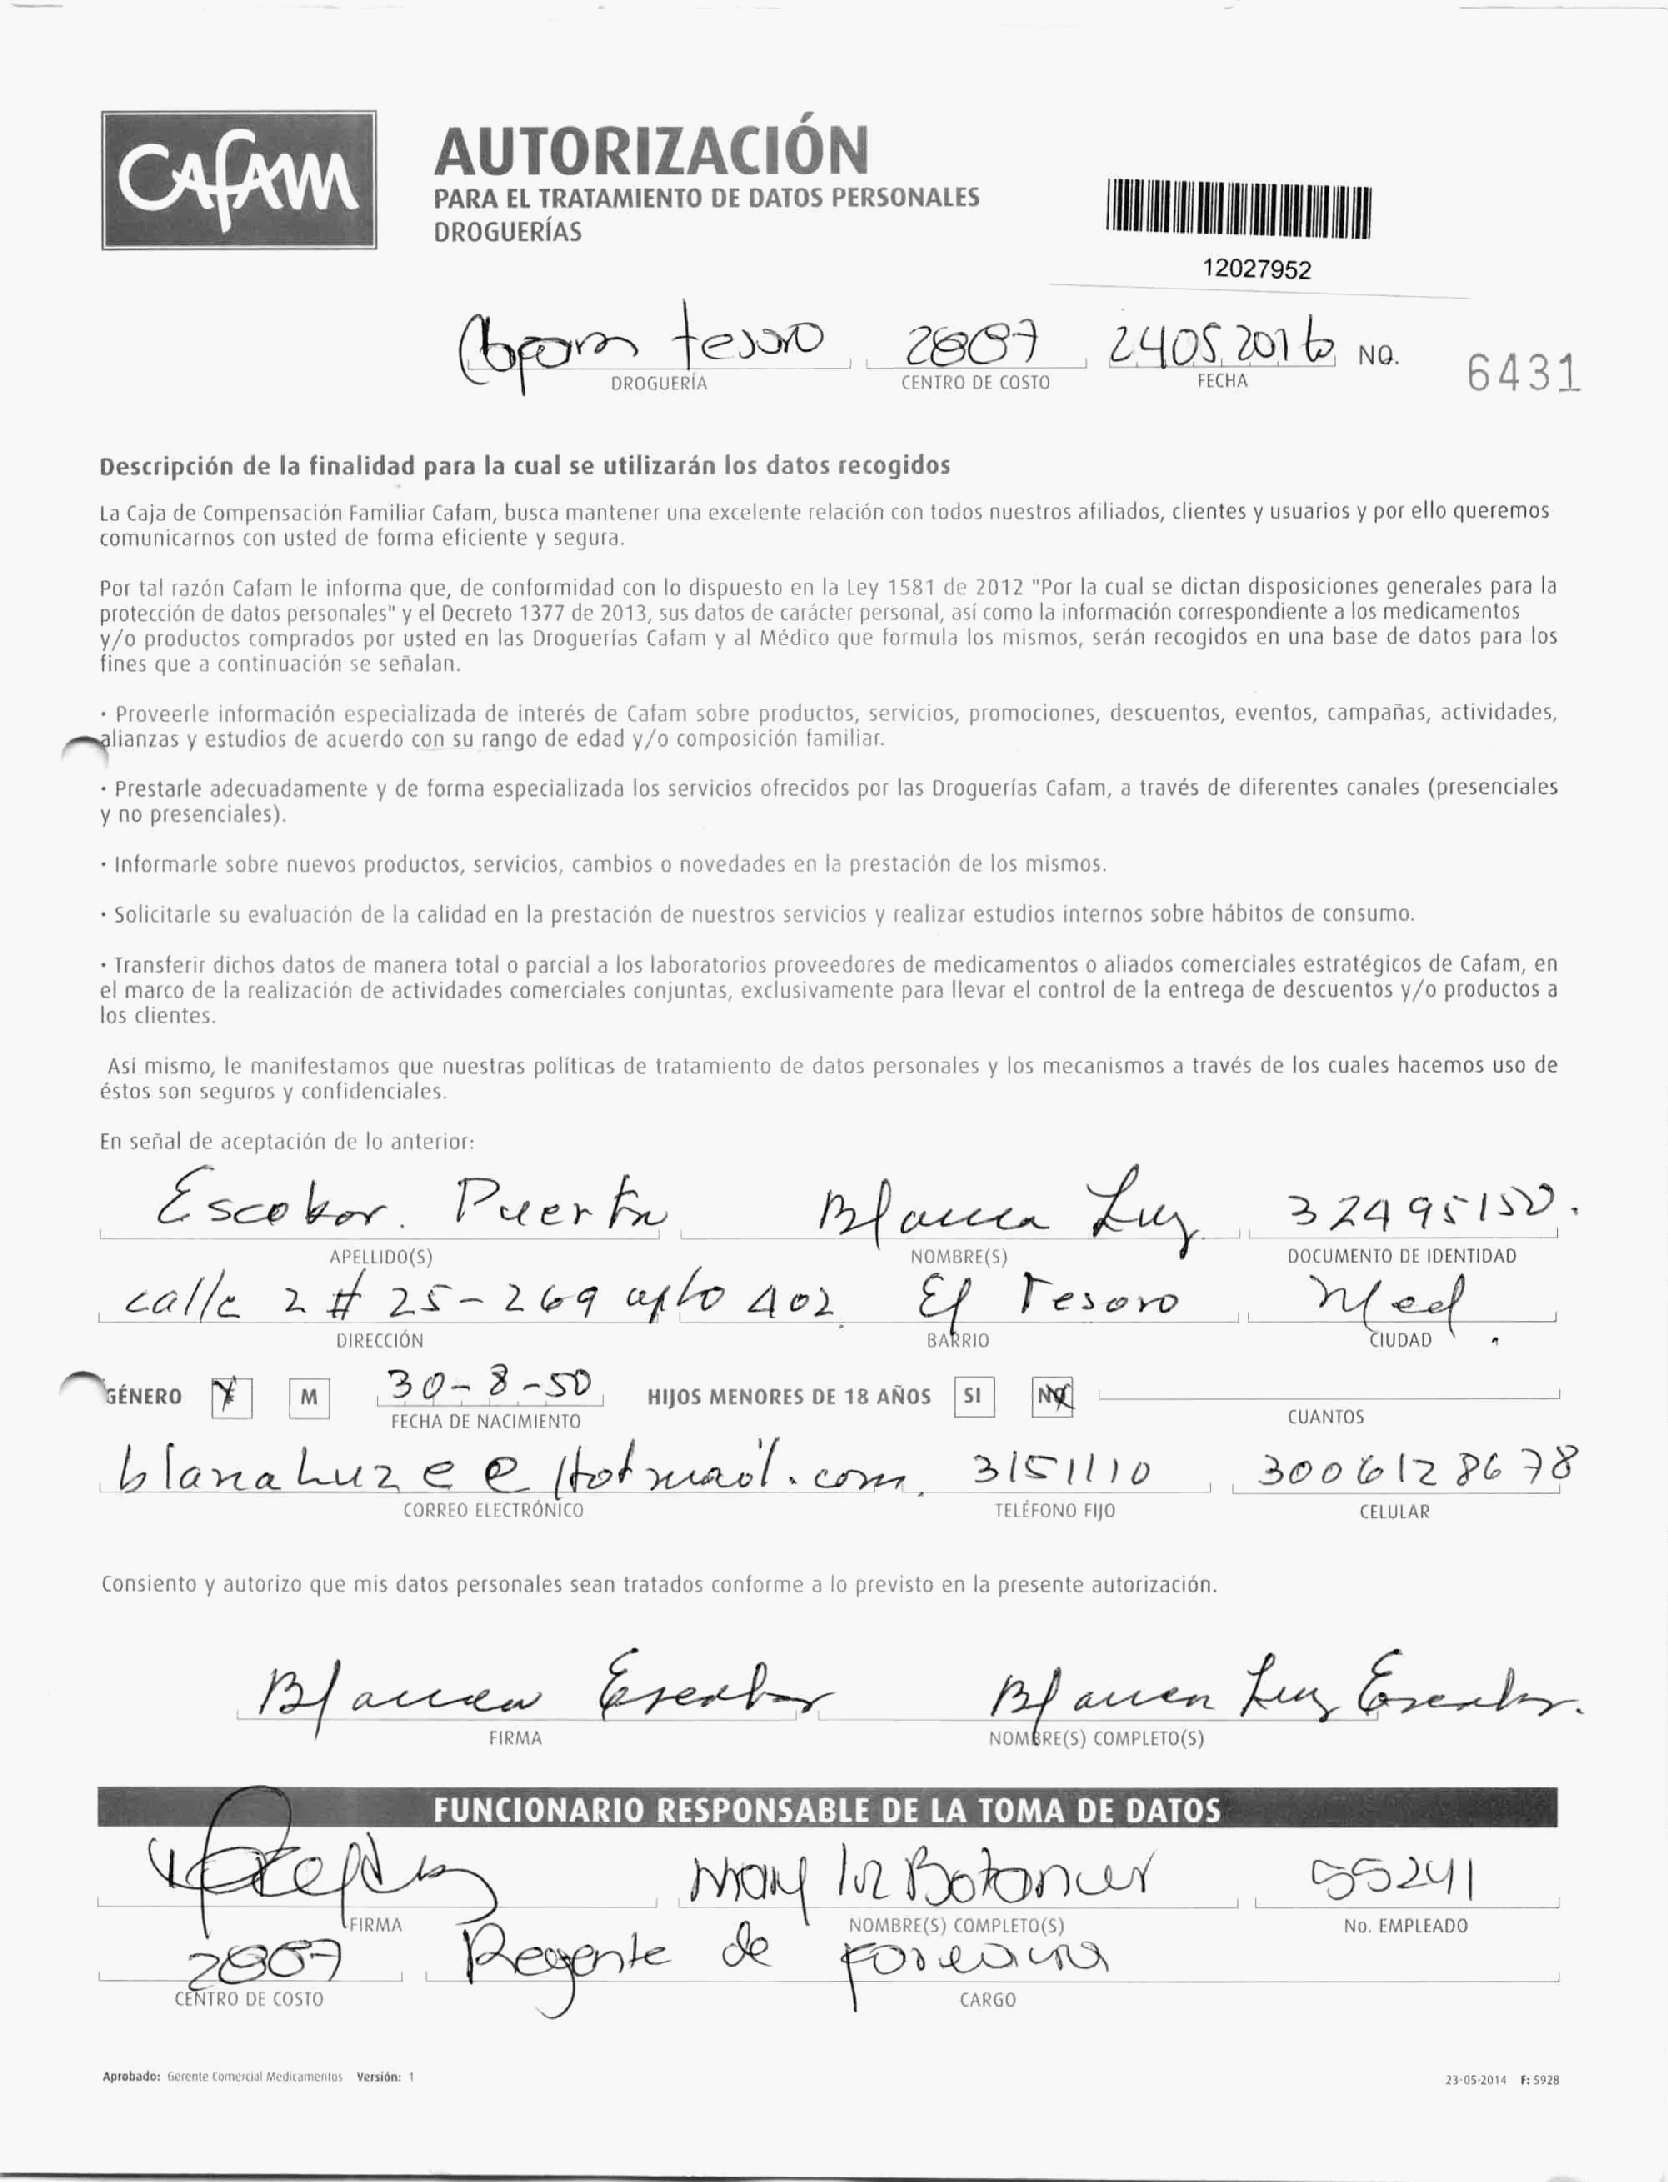 CAFAM
AUTORIZACIÓN
PARA EL TRATAMIENTO DE DATOS PERSONALES
DROGUERÍAS
12027952
tesoro 2024 24 05 2016 NO. 6431
DROGUERÍA CENTRO DE COSTO FECHA
Descripción de la finalidad para la cual se utilizarán los datos recogidos
La Caja de Compensación Familiar Cafam, busca mantener una excelente relación con todos nuestros afiliados, clientes y usuarios y por ello queremos
comunicarnos con usted de forma eficiente y segura.
Por tal razón Cafam le informa que, de conformidad con lo dispuesto en la Ley 1581 de 2012 "Por la cual se dictan disposiciones generales para la
protección de datos personales" y el Decreto 1377 de 2013, sus datos de carácter personal, así como la información correspondiente a los medicamentos
y/o productos comprados por usted en las Droguerías Cafam y al Médico que formula los mismos, serán recogidos en una base de datos para los
fines que a continuación se señalan.
· Proveerle información especializada de interés de Cafam sobre productos, servicios, promociones, descuentos, eventos, campañas, actividades,
alianzas y estudios de acuerdo con su rango de edad y/o composición familiar.
· Prestarle adecuadamente y de forma especializada los servicios ofrecidos por las Droguerías Cafam, a través de diferentes canales (presenciales
y no presenciales).
· Informarle sobre nuevos productos, servicios, cambios o novedades en la prestación de los mismos.
· Solicitarle su evaluación de la calidad en la prestación de nuestros servicios y realizar estudios internos sobre hábitos de consumo.
· Transferir dichos datos de manera total o parcial a los laboratorios proveedores de medicamentos o aliados comerciales estratégicos de Cafam, en
el marco de la realización de actividades comerciales conjuntas, exclusivamente para llevar el control de la entrega de descuentos y/o productos a
los clientes.
Asi mismo, le manifestamos que nuestras políticas de tratamiento de datos personales y los mecanismos a través de los cuales hacemos uso de
éstos son seguros y confidenciales.
En señal de aceptación de lo anterior:
Escobar. Puerta Blanca Luz 32495150.
APELLIDO(S) NOMBRE(S) DOCUMENTO DE IDENTIDAD
calle 2 # 25-269 apto 402 El Tesoro Med.
DIRECCIÓN BARRIO CIUDAD
GÉNERO M 30-8-50 HIJOS MENORES DE 18 AÑOS SI NO
FECHA DE NACIMIENTO CUANTOS
blancaluz e @ Hotmail.com. 3151110 3006128678
CORREO ELECTRÓNICO TELÉFONO FIJO CELULAR
Consiento y autorizo que mis datos personales sean tratados conforme a lo previsto en la presente autorización.
Blanca Escobar Blanca Luz Escobar.
FIRMA NOMBRE(S) COMPLETO(S)
FUNCIONARIO RESPONSABLE DE LA TOMA DE DATOS
55241
FIRMA NOMBRE(S) COMPLETO(S) No. EMPLEADO
Regente de
CENTRO DE COSTO CARGO
Aprobado: Gerente Comercial Medicamentos Versión: 1 23-05-2014 F: 5928